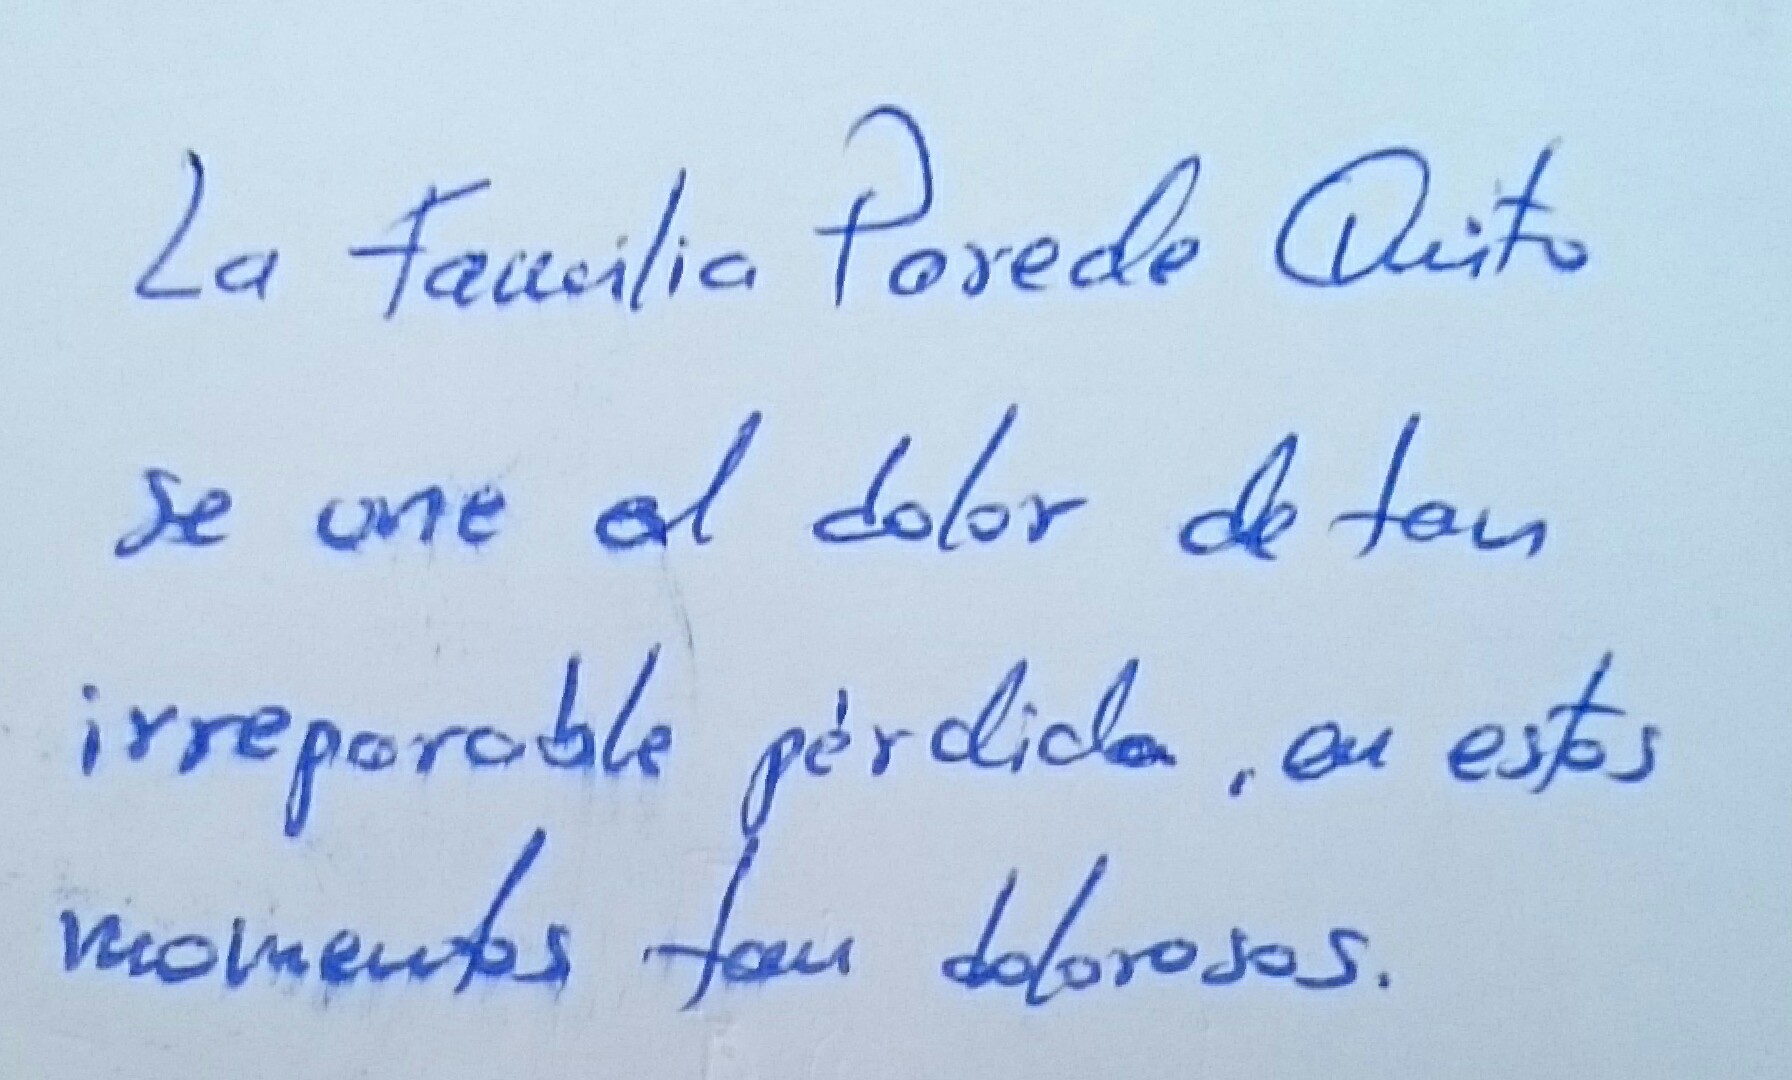 La Familia Parede Quito
se une al dolor de tan
irreparable pérdida, en estos
momentos tan dolorosos.